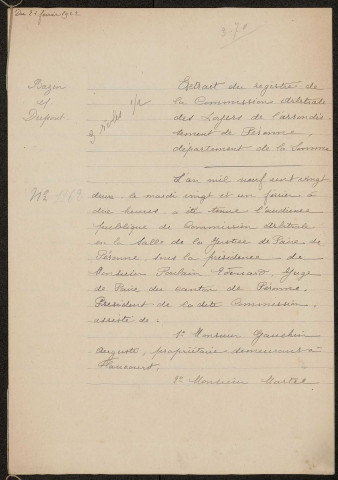 Du 21 février 1922
Bazin
c/
Dupont
3 rôles 1/2
Extrait du registre de
la Commission Arbitrale
des Loyers de l'arrondis-
sement de Péronne,
département de la Somme
L'an mil neuf cent vingt
deux le mardi vingt et un février à
deux heures a été tenue l'audience
publique de Commission Arbitrale
en la Salle de la Justice de Paix de
Péronne sous la présidence de
Monsieur Poulain Juge
de Paix du canton de Péronne,
Président de la dite Commission,
assisté de.
1° Monsieur Gauchin
Auguste, propriétaire demeurant à
Flaucourt.
2° Monsieur Martel